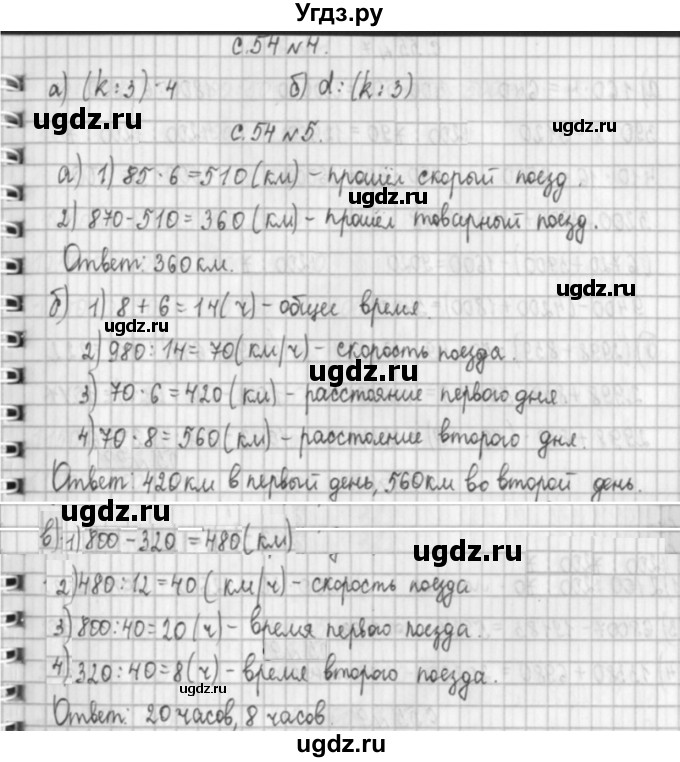 Угдз.ру
с.54 №4.
а) (k:3)·4 б) d:(k:3)
ugdz.ru ugdz.ru
с.54 №5.
а) 1) 85·6=510(км) - прошёл скорый поезд.
ugdz.ru
2) 870-510=360(км) - прошёл товарный поезд.
Ответ: 360км.
б) 1) 8+6=14(ч) - общее время.
ugdz.ru
2) 980:14=70(км/ч) - скорость поезда.
ugdz.ru
3) 70·6=420(км) - расстояние первого дня
4) 70·8=560(км) - расстояние второго дня.
Ответ: 420км в первый день, 560км во второй день.
ugdz.ru
в) 1) 800-320=480(км)
ugdz.ru
2) 480:12=40(км/ч) - скорость поезда
3) 800:40=20(ч) - время первого поезда.
4) 320:40=8(ч) - время второго поезда.
ugdz.ru
Ответ: 20часов, 8 часов.
ugdz.ru